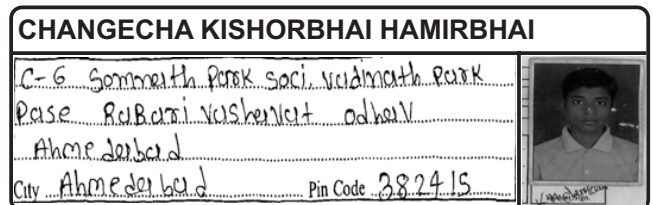 CHANGECHA KISHORBHAI HAMIRBHAI
C-6 Somnath Park soci. vaidnath Park
Pase RaBari vashavat odhav
Ahmedabad
City Ahmedabad Pin Code 382415